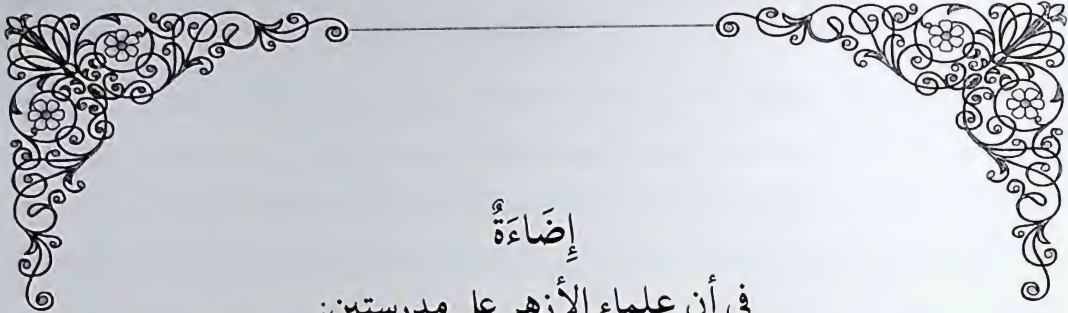 إِضَاءَةٌ
في أن علماء الأزهر على مدرستين: